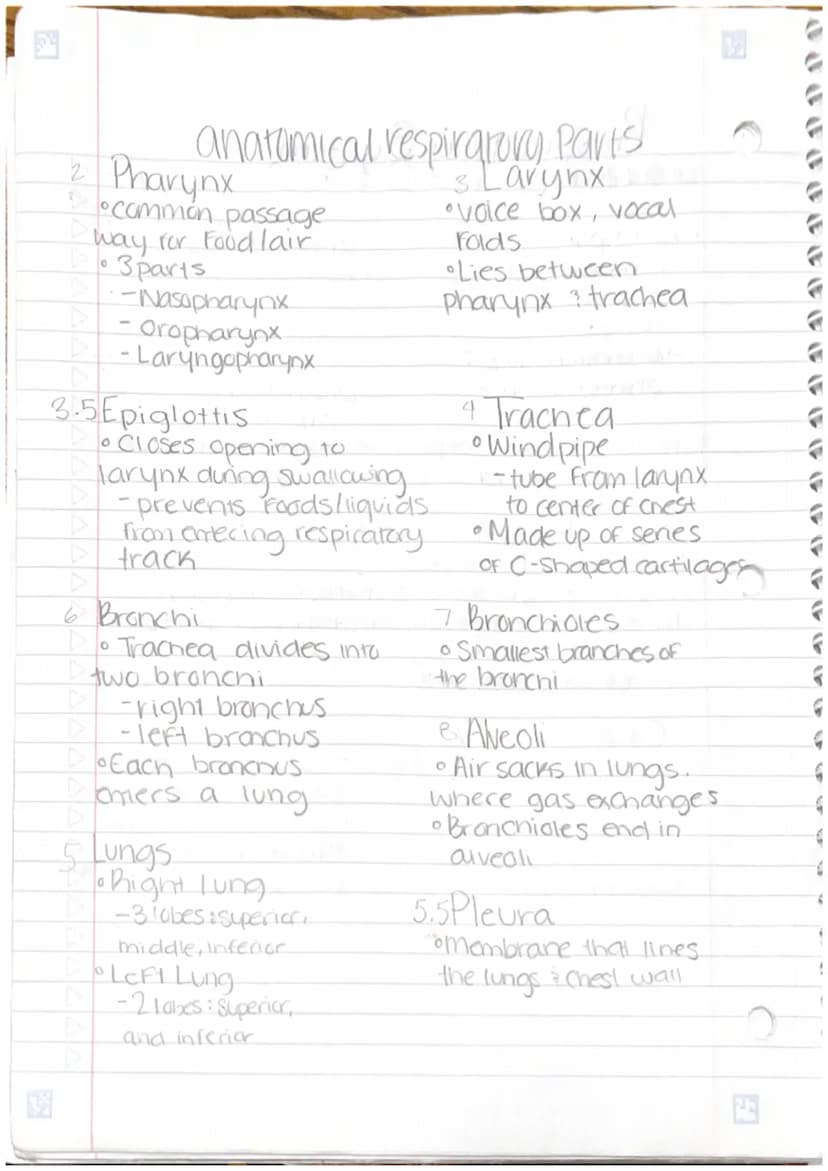 anatomical respiratory Parts
2 Pharynx
°common passage
way for Food/air
° 3 parts
- Nasopharynx
- Oropharynx
- Laryngopharynx
3 Larynx
°voice box, vocal
Folds
°Lies between
pharynx & trachea
3.5 Epiglottis
° Closes opening to
larynx during swallowing
- prevents Foods/liquids
from entering respiratory
track
4 Trachea
° Windpipe
- tube from larynx
to center of chest
° Made up of series
of C-shaped cartilages
6 Bronchi
° Trachea divides into
two bronchi
- right bronchus
- left bronchus
°Each bronchus
enters a lung
7 Bronchioles
° Smallest branches of
the bronchi
8 Alveoli
° Air sacks in lungs.
where gas exchanges
° Bronchioles end in
alveoli
5 Lungs
° Right lung
- 3 lobes: superior,
middle, inferior
° Left Lung
- 2 lobes: superior,
and inferior
5.5 Pleura
°Membrane that lines
the lungs & chest wall